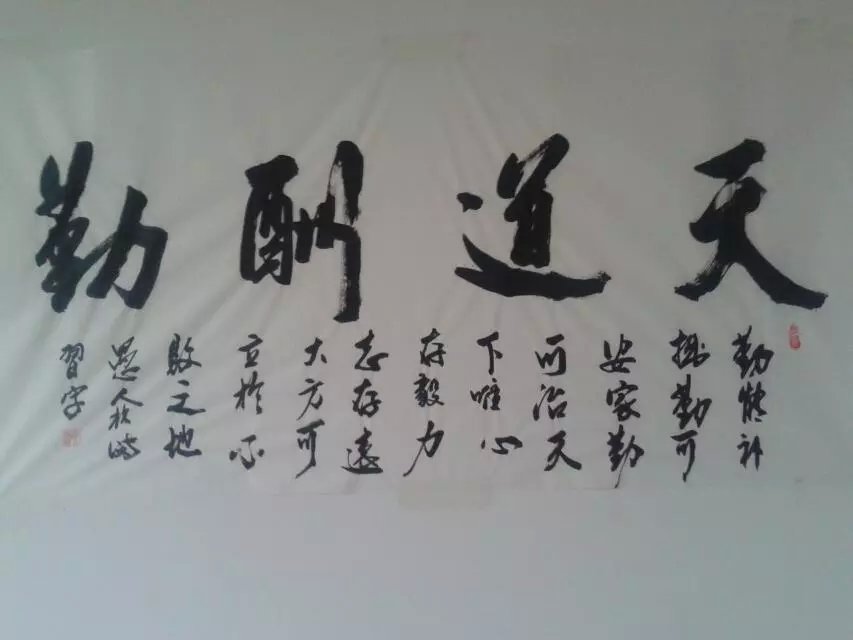 天道酬勤
勤能补
拙勤可
安家勤
可治天
下唯心
存毅力
志存远
大方可
立於不
败之地
愚人秋鸿
習字